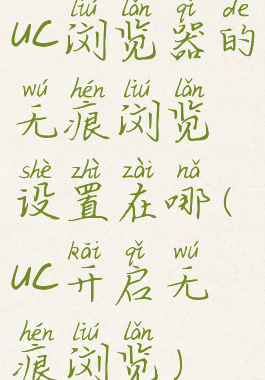 liú lǎn qì de
UC浏览器的
wú hén liú lǎn
无痕浏览
shè zhì zài nǎ
设置在哪(
kāi qǐ wú
UC开启无
hén liú lǎn
痕浏览)